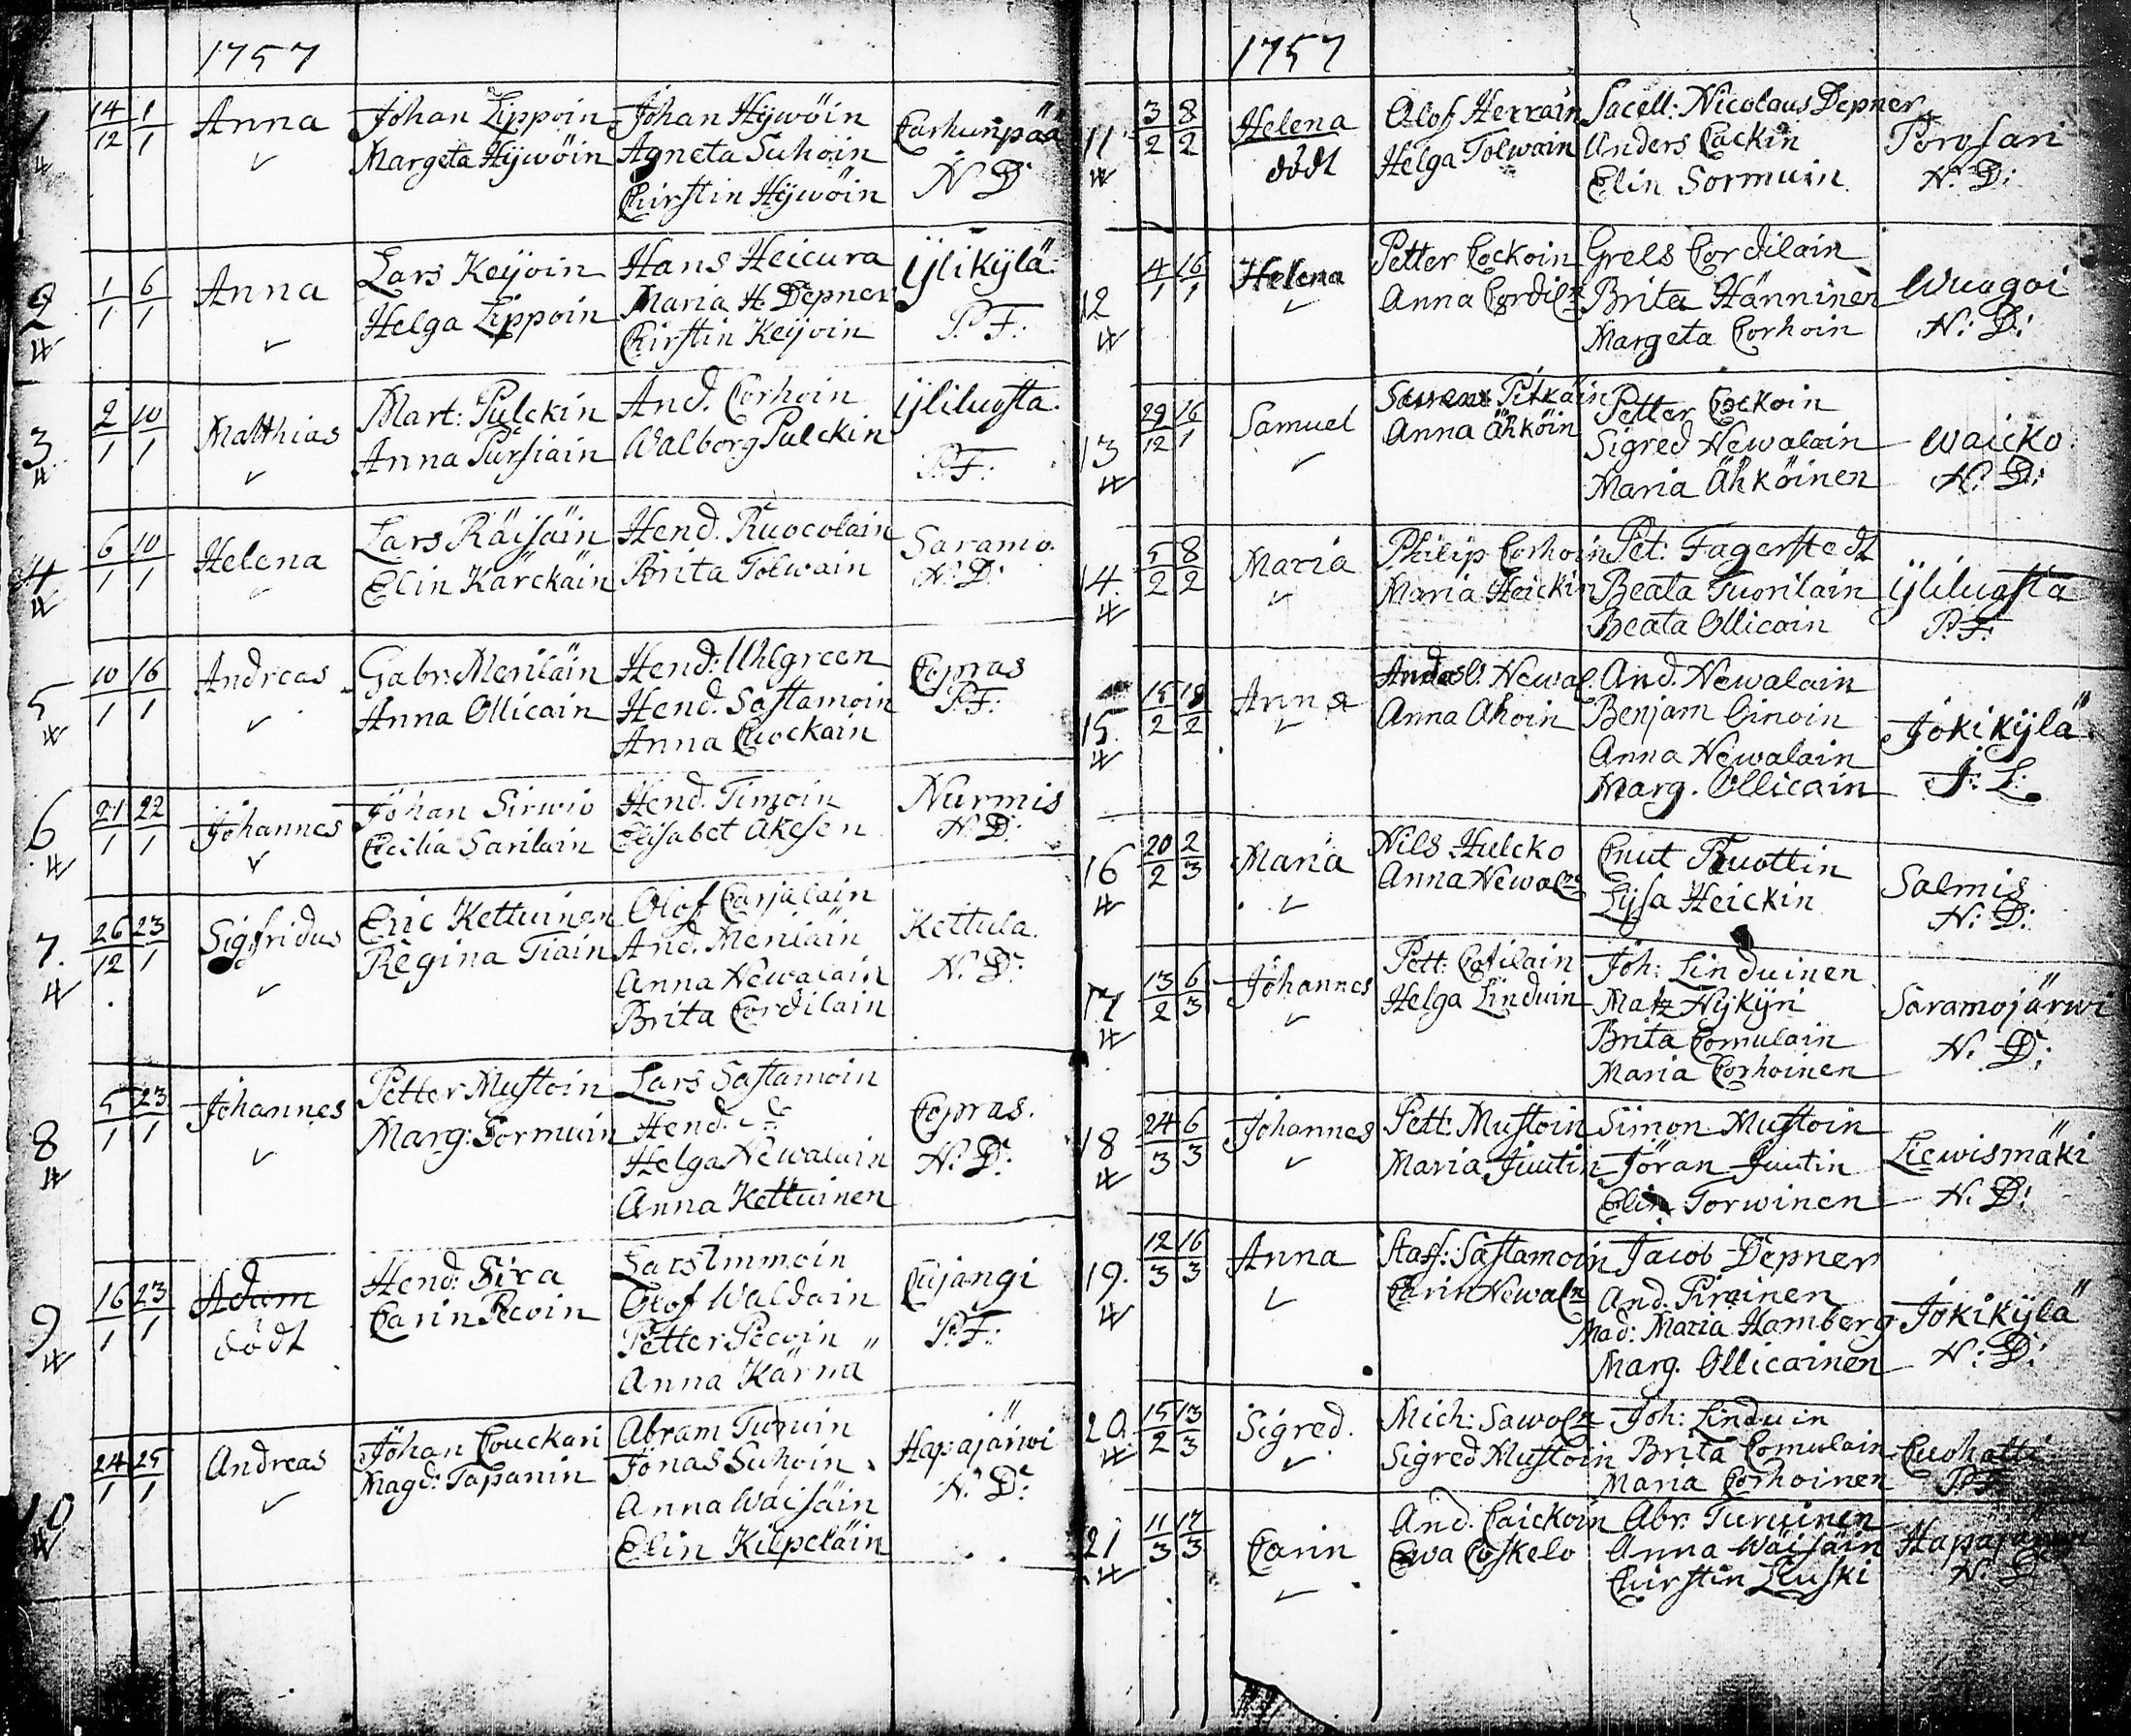 1757
1 14/12 1/1 Anna Johan Lippoin Johan Hÿwöin Carhunpää
Margeta Hÿwöin Agneta Suhoin N. D.
Chirstin Hÿwöin
2 1/1 6/1 Anna Lars Keÿoin Hans Heicura ÿlikÿlä
Helga Lippoin Maria H. Depner P. F.
Chirstin Keÿoin
3 2/1 10/1 Matthias Mart: Pulckin And. Corhoin ÿliluosta.
Anna Pursiain Walborg Pulckin P. F.
4 6/1 10/1 Helena Lars Räisäin Hend. Ruocolain Saramo.
Elin Kärckäin Brita Tolwain N. D.
5 10/1 16/1 Andreas Gabr. Meriläin Hend. Uhlgreen Copras
Anna Ollicain Hend. Sastamoin P. F.
Anna Cuockain
6 21/1 22/1 Johannes Johan Sirwio Hend. Timoin Nurmis
Cecilia Sarilain Elisabet Akesen N. D.
7. 26/12 23/1 Sigfridus Eric Kettuinen Olof Carjalain Kettula.
Regina Tiain And. Meriläin N. D.
Anna Newalain
Brita Cordilain
8 5/1 23/1 Johannes Petter Mustoin Lars Sastamoin Copras.
Marg: Sormuin Hend. do N. D.
Helga Newalain
Anna Kettuinen
9 16/1 23/1 Adam Hend: Sira Lars Immoin Cujangi
dödt Carin Recoin Olof Waldain P. F.
Petter Recoin
Anna Kärnä
10 24/1 25/1 Andreas Johan Couckari Abram Turuin Hapajärwi
Magd: Tapanin Jonas Suhoin N. D.
Anna Wäisäin
Elin Kilpeläin
1757
11 3/2 8/2 Helena Olof Herrain Sacell: Nicolaus Depner Porosari
dödt Helga Tolwain Anders Cackin N. D.
Elin Sormuin
12 4/1 16/1 Helena Petter Cockoin Grels Cordilain Wuogoi
Anna Cordiln Brita Hänninen N. D.
Margeta Corhoin
13 29/12 16/1 Samuel Pitkäin Petter Cockoin Waicko.
Anna Ähköin Sigred Newalain N. D.
Maria Ähköinen
14. 5/2 8/2 Maria Philip Corhoin Pet: Fagerstedt ÿliluosta
Maria Heickin Beata Tuorilain P. F.
Beata Ollicain
15. 15/2 18/2 Anna Newal. And. Newalain Jokikÿlä.
Anna Ahoin Benjam Cinoin J. L.
Anna Newalain
Marg. Ollicain
16 20/2 2/3 Maria Nils Hulcko Cnut Ruottin Salmis
Anna Newaln Lÿsa Heickin N. D.
17 13/2 6/3 Johannes Pett: Cotilain Joh: Linduinen Saramojärwi
Helga Linduin Matz Nÿkÿri N. D.
Brita Comulain
Maria Corhoinen
18 24/3 6/3 Johannes Pett: Mustoin Simon Mustoin Liewismäki
Maria Juutin Jöran Juutin N. D.
Elin Torwinen
19. 12/3 16/3 Anna Staff: Sastamoin Jacob Depner Jokikÿlä
Carin Newaln And. Pirainen N. D.
Mad: Maria Hamberg
Marg. Ollicainen
20. 15/2 13/3 Sigred. Mich: Sawoln Joh: Linduin Cuohatti
Sigred Mustoin Brita Comulain P. F.
Maria Corhoinen
21 11/3 17/3 Carin And. Caickoin Abr. Turuinen Hapajärwi
Ewa Coskelo Anna Wäisäin N. D.
Chirstin Lluski